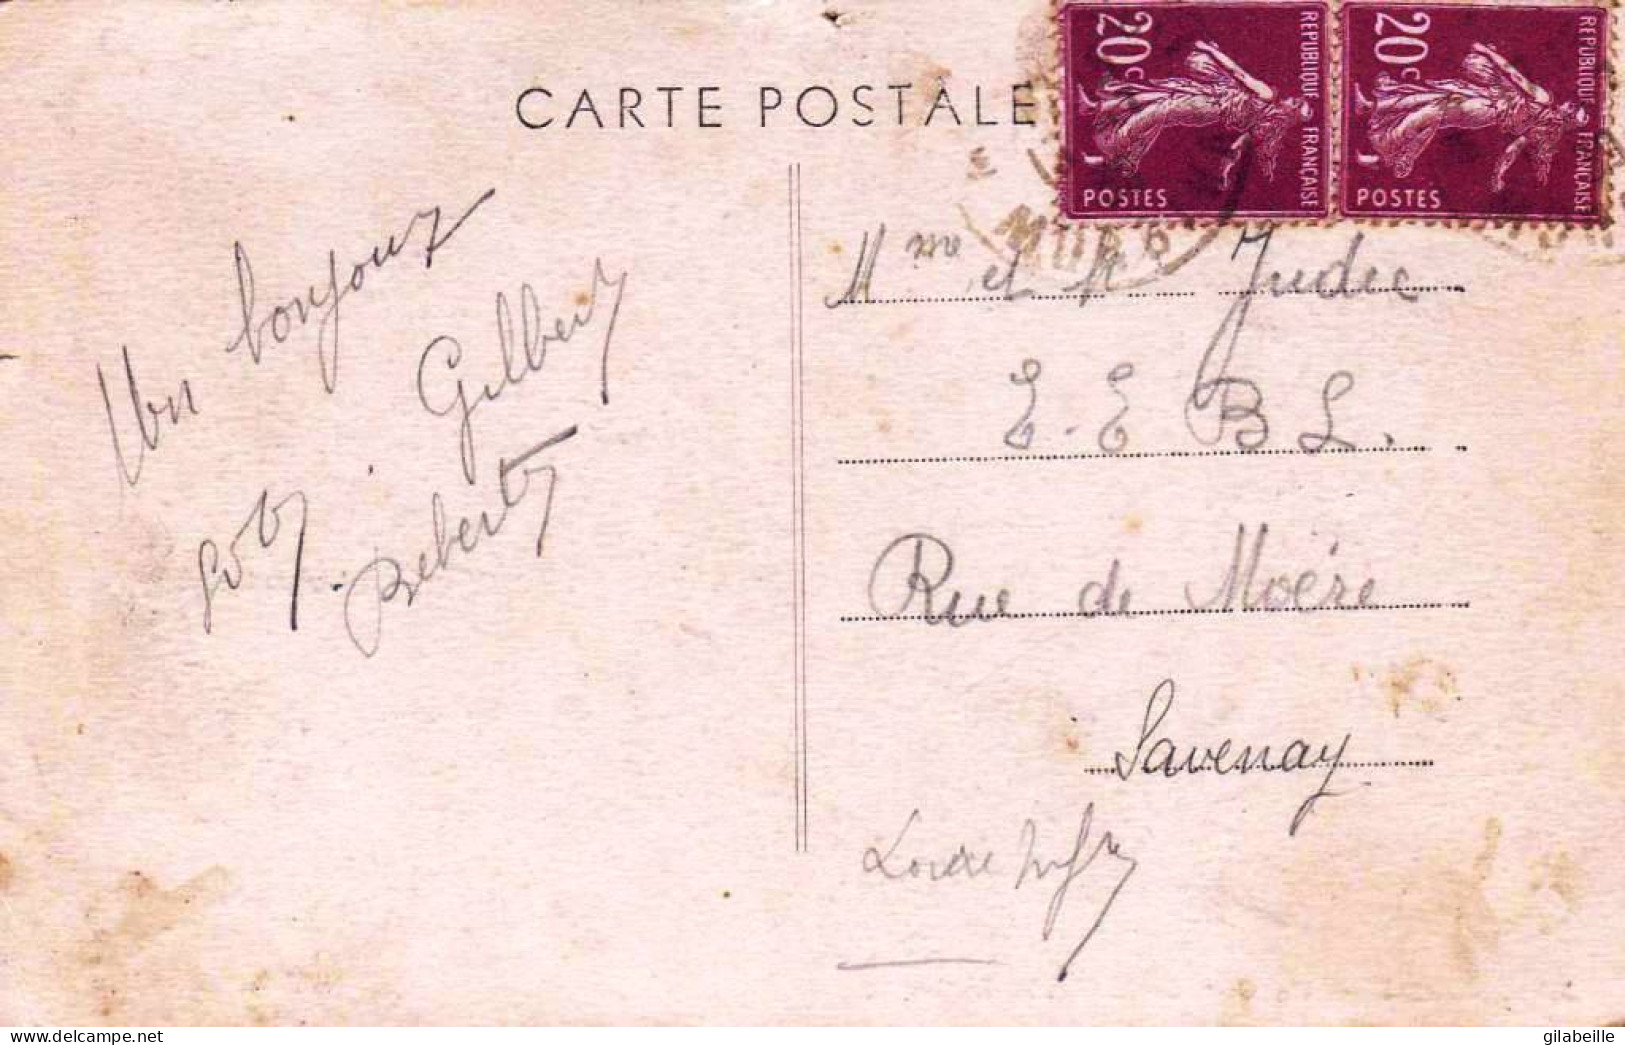 CARTE POSTALE
20c
REPUBLIQUE FRANÇAISE
POSTES
20c
REPUBLIQUE FRANÇAISE
POSTES
Mon bonjour
Gilbert
Beberty
Mme et M Judic
E. E B L.
Rue de Moëre
Savenay
Loire Infre
delcampe.net
gilabeille